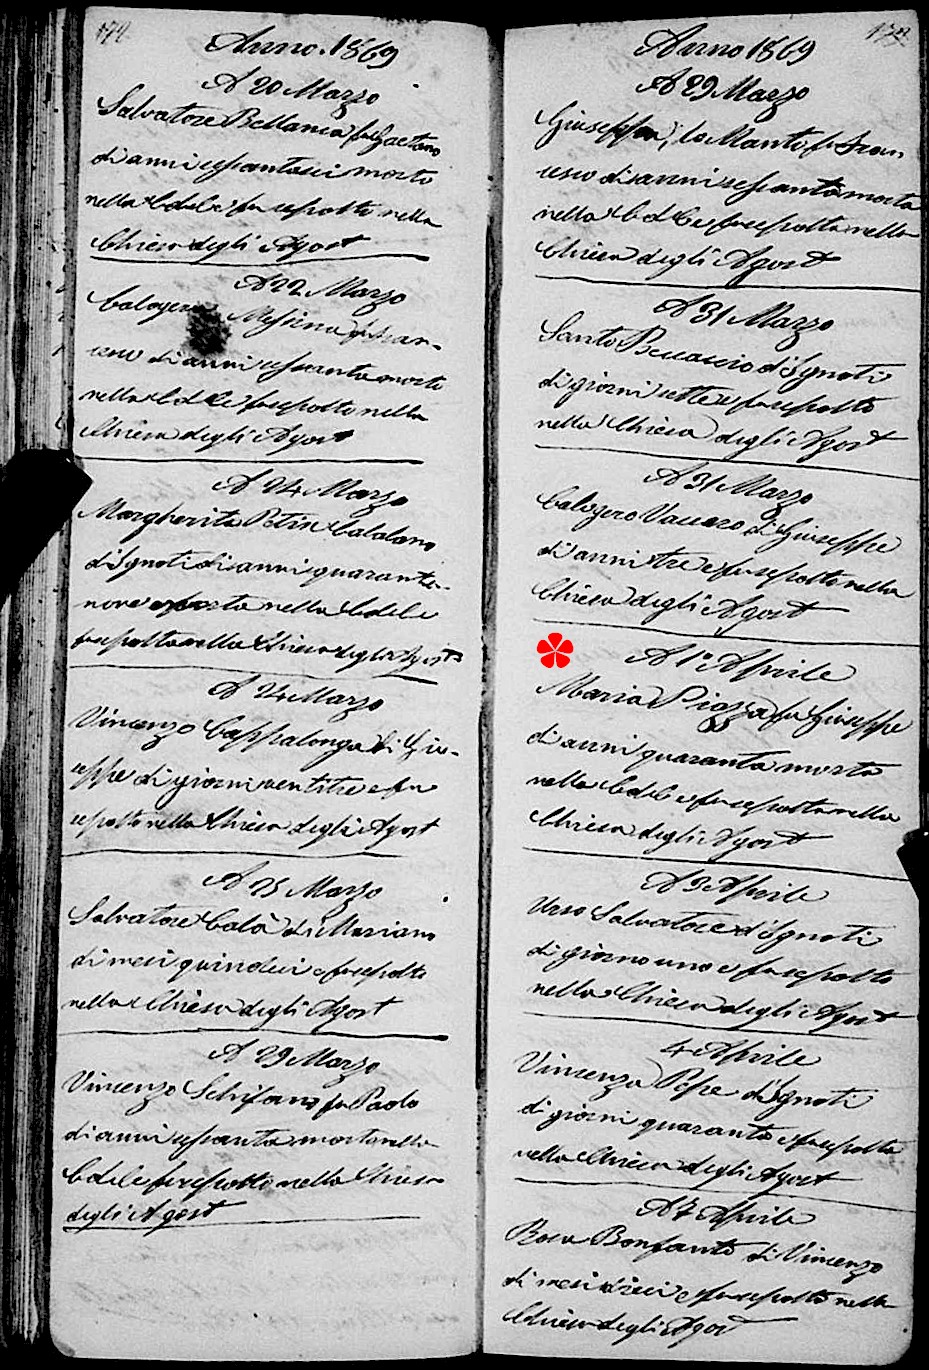 172
Anno. 1869
A 20 Marzo
Salvatore Bellanca fu Gaetano
di anni sessantasei morto
nella C di C e fu sepolto nella
Chiesa degli Agost
A 22 Marzo
Calogero Messina fu Fran-
cesco di anni sessanta morto
nella C di C e fu sepolto nella
Chiesa degli Agost
A 24 Marzo
Margherita
d'Ignoti di anni quaranta-
nove morta nella C di C e
fu sepolta nella Chiesa degli Agost
A 24 Marzo
Vincenzo Cappalonga di Giu-
seppe di giorni ventitre e fu
sepolto nella Chiesa degli Agost
A 25 Marzo
Salvatore Calà di Mariano
di mesi quindici e fu sepolto
nella Chiesa degli Agost
A 29 Marzo
Vincenzo Schifano fu Paolo
di anni sessanta morto nella
C di C e fu sepolto nella Chiesa
degli Agost
Anno 1869
A 29 Marzo
Giuseppa la Manto fu Fran
cesco di anni sessanta morta
nella C di C e fu sepolta nella
Chiesa degli Agost
A 31 Marzo
Santo Beccaccio d'Ignoti
di giorni sette e fu sepolto
nella Chiesa degli Agost
A 31 Marzo
Calogero Vaccaro di Giuseppe
di anni tre e fu sepolto nella
Chiesa degli Agost
A 1° Aprile
Maria Piazza fu Giuseppe
di anni quaranta morta
nella C di C e fu sepolta nella
Chiesa degli Agost
A 3 Aprile
Urso Salvatore d'Ignoti
di giorno uno e fu sepolto
nella Chiesa degli Agost
4 Aprile
Vincenza Pepe d'Ignoti
di giorni quaranta e fu sepolta
nella Chiesa degli Agost
A 7 Aprile
Rosa Bonfanti di Vincenzo
di mesi dieci e fu sepolta nella
Chiesa degli Agost